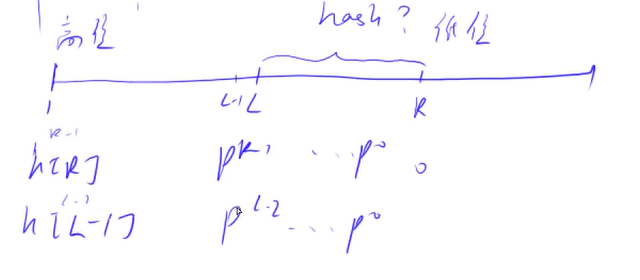 高位 hash? 低位
1 L-1 L R
R-1
h[R] p^{R-1} ... p^0 0
L-1
h[L-1] p^{L-2} ... p^0